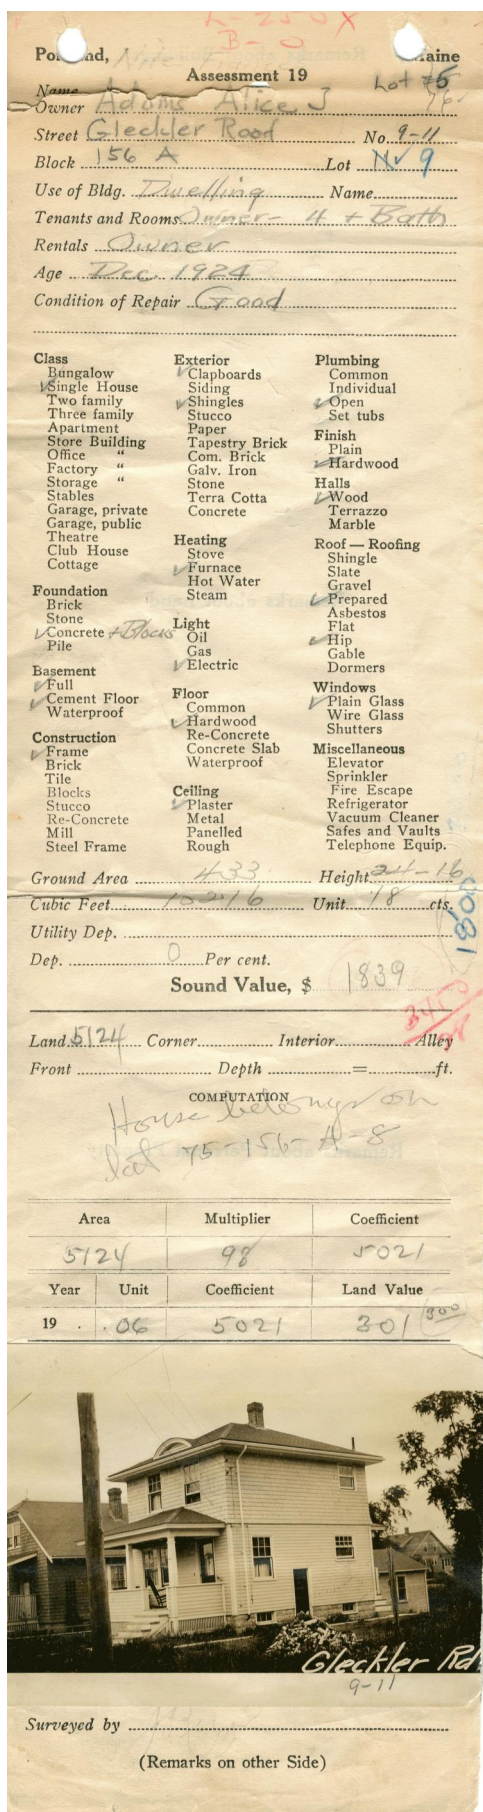 L-250X
B-0
Portland, Maine
Assessment 19
Lot 75
76
Name
Owner Adams Alice J
Street Gleckler Road No. 9-11
Block 156 A Lot 9
Use of Bldg. Dwelling Name
Tenants and Rooms Owner- 4 + Bath
Rentals Owner
Age Dec. 1924
Condition of Repair Good
Class
Bungalow
✓Single House
Two family
Three family
Apartment
Store Building
Office "
Factory "
Storage "
Stables
Garage, private
Garage, public
Theatre
Club House
Cottage
Foundation
Brick
Stone
✓Concrete + Blocks
Pile
Basement
✓Full
✓Cement Floor
Waterproof
Construction
✓Frame
Brick
Tile
Blocks
Stucco
Re-Concrete
Mill
Steel Frame
Exterior
✓Clapboards
Siding
✓Shingles
Stucco
Paper
Tapestry Brick
Com. Brick
Galv. Iron
Stone
Terra Cotta
Concrete
Heating
Stove
✓Furnace
Hot Water
Steam
Light
Oil
Gas
✓Electric
Floor
Common
✓Hardwood
Re-Concrete
Concrete Slab
Waterproof
Ceiling
✓Plaster
Metal
Panelled
Rough
Plumbing
Common
Individual
✓Open
✓Set tubs
Finish
Plain
✓Hardwood
Halls
✓Wood
Terrazzo
Marble
Roof — Roofing
Shingle
Slate
Gravel
✓Prepared
Asbestos
Flat
✓Hip
Gable
Dormers
Windows
✓Plain Glass
Wire Glass
Shutters
Miscellaneous
Elevator
Sprinkler
Fire Escape
Refrigerator
Vacuum Cleaner
Safes and Vaults
Telephone Equip.
Ground Area 433 Height 24-16
Cubic Feet 10216 Unit 18 cts.
Utility Dep.
Dep. 0 Per cent.
Sound Value, $ 1839
3450
98
Land 5124 Corner Interior Alley
Front Depth = ft.
COMPUTATION
House belongs on
lot 75-156-A-8
Area Multiplier Coefficient
5124 98 5021
Year Unit Coefficient Land Value
19 .06 5021 301 300
Gleckler Rd.
9-11
Surveyed by
(Remarks on other Side)